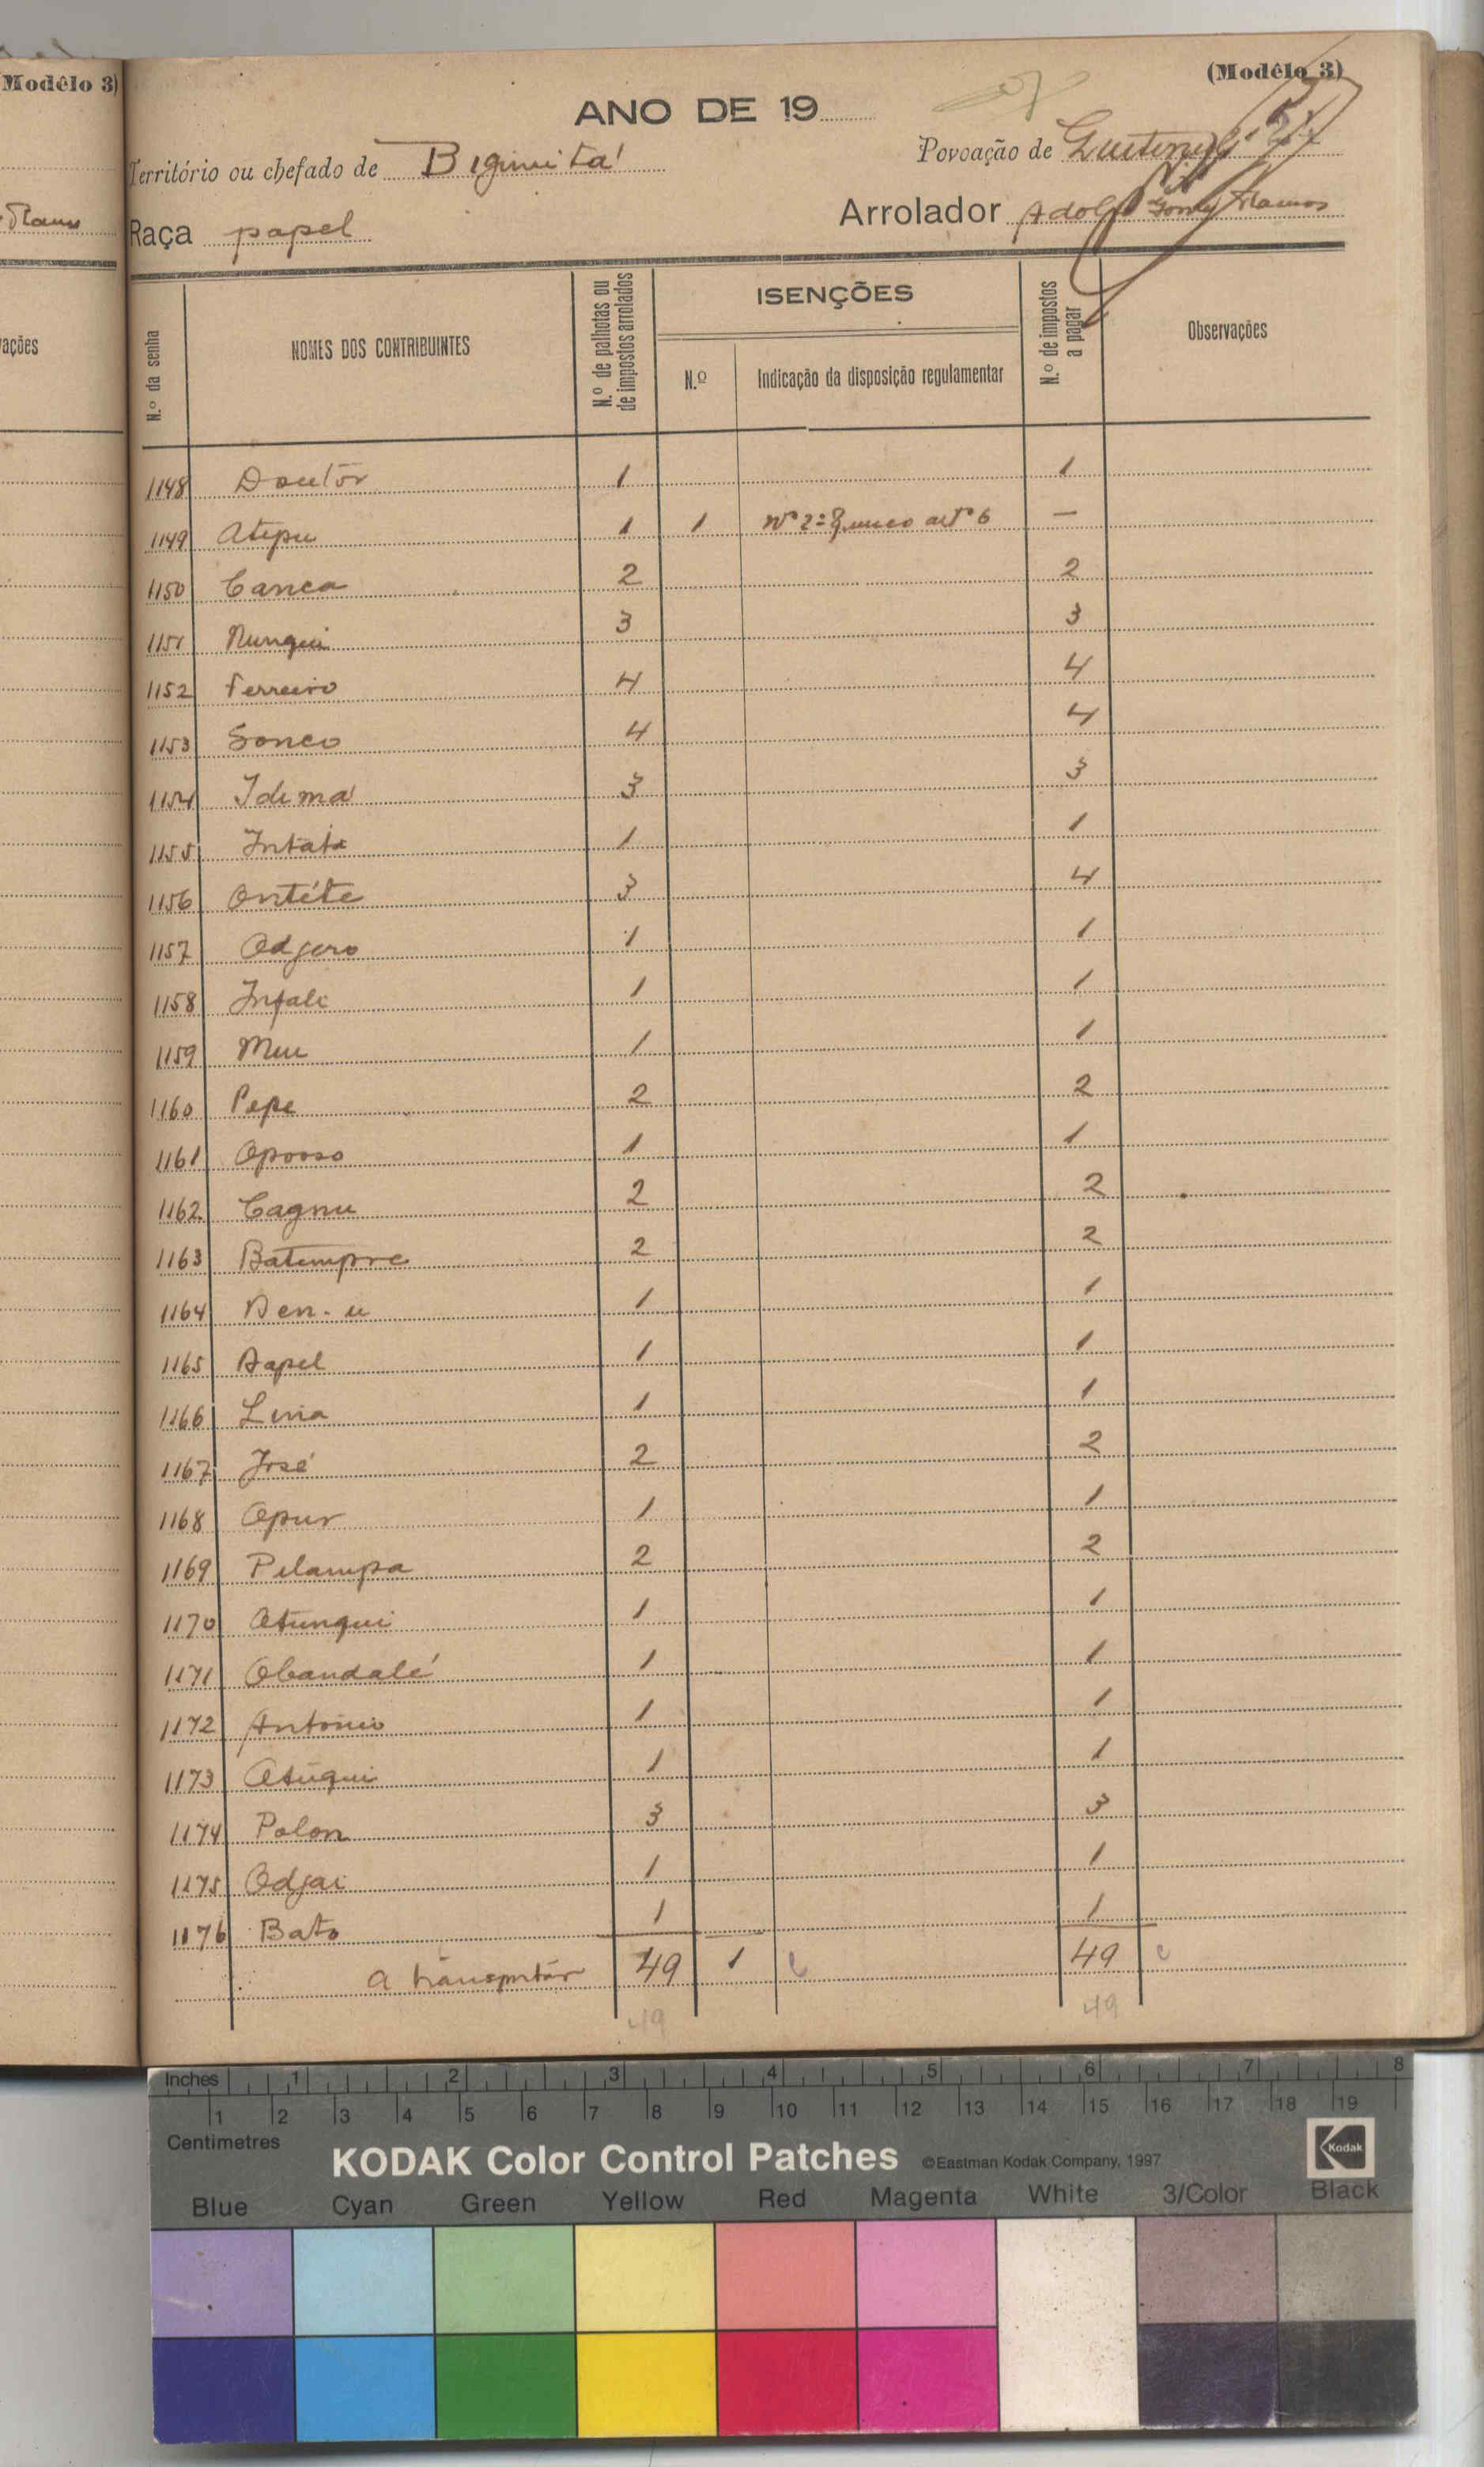 (Modêlo 3)
(Modêlo 3)
ANO DE 19
Território ou chefado de Bigimitá
Povoação de
Raça papel
Arrolador Adolfo Ramos
Ramos
ações
N.º da senha
NOMES DOS CONTRIBUINTES
N.º de palhotas ou de impostos arrolados
ISENÇÕES
N.º
Indicação da disposição regulamentar
N.º de impostos a pagar
Observações
1148 Doutôr 1 1
1149 Atepu 1 1 Nº 2º § unico artº 6 —
1150 Canca 2 2
1151 Nunqui 3 3
1152 Ferreiro 4 4
1153 Sonco 4 4
1154 Idema 3 3
1155 Intate 1 1
1156 Ontéte 3 4
1157 Odjoro 1 1
1158 Infali 1 1
1159 Meu 1 1
1160 Pepe 2 2
1161 Oposso 1 1
1162 Cagnu 2 2
1163 Batempre 2 2
1164 Den-u 1 1
1165 Aapel 1 1
1166 Liria 1 1
1167 José 2 2
1168 Opur 1 1
1169 Pelampa 2 2
1170 Atunqui 1 1
1171 Obandalé 1 1
1172 Antonio 1 1
1173 Atuqui 1 1
1174 Polon 3 3
1175 Odjai 1 1
1176 Bato 1 1
a transportár 49 1 49
49 49
Inches 1 2 3 4 5 6 7 8
1 2 3 4 5 6 7 8 9 10 11 12 13 14 15 16 17 18 19
Centimetres
KODAK Color Control Patches ©Eastman Kodak Company, 1997
Kodak
Blue Cyan Green Yellow Red Magenta White 3/Color Black